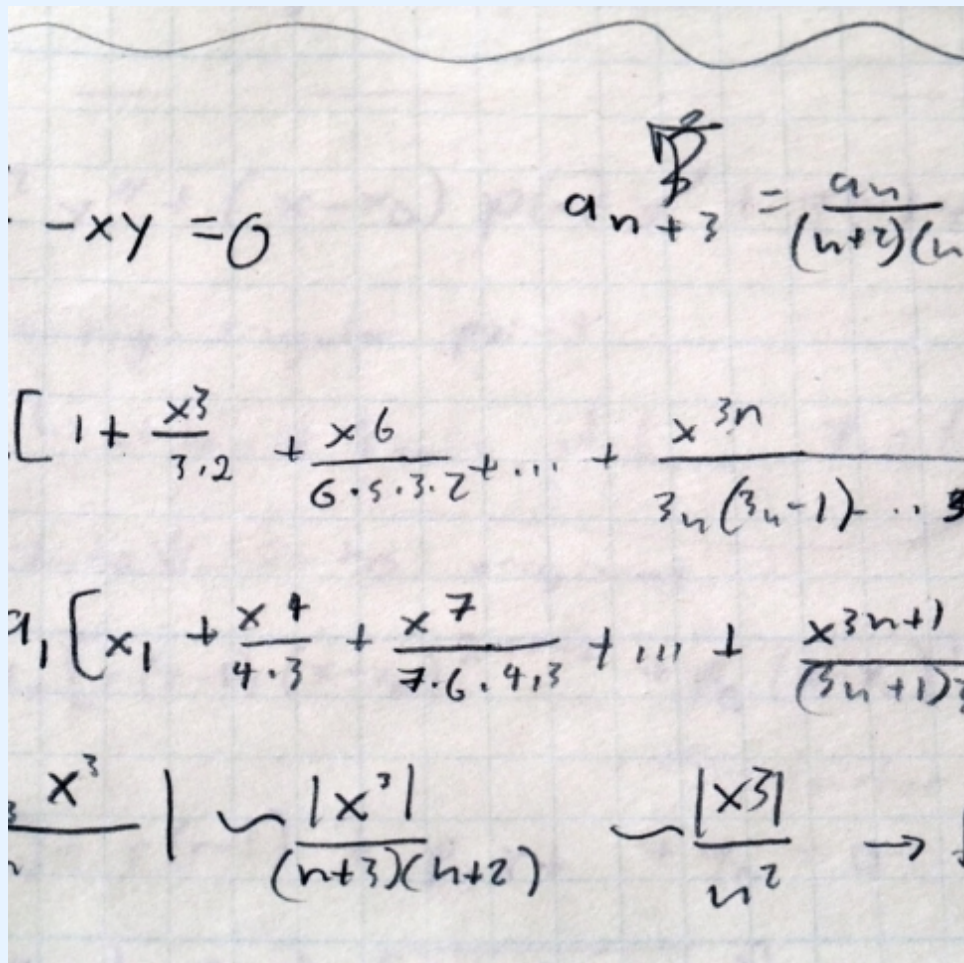 -xy = 0
a n+3 = an / (n+2)(n
[ 1 + x^3 / 3·2 + x^6 / 6·5·3·2 + ... + x^3n / 3n(3n-1)- ·· 3
a_1 [ x_1 + x^4 / 4·3 + x^7 / 7·6·4·3 + ... + x^3n+1 / (3n+1)3
x^3 | ~ |x^3| / (n+3)(n+2) ~ |x3| / n^2 →